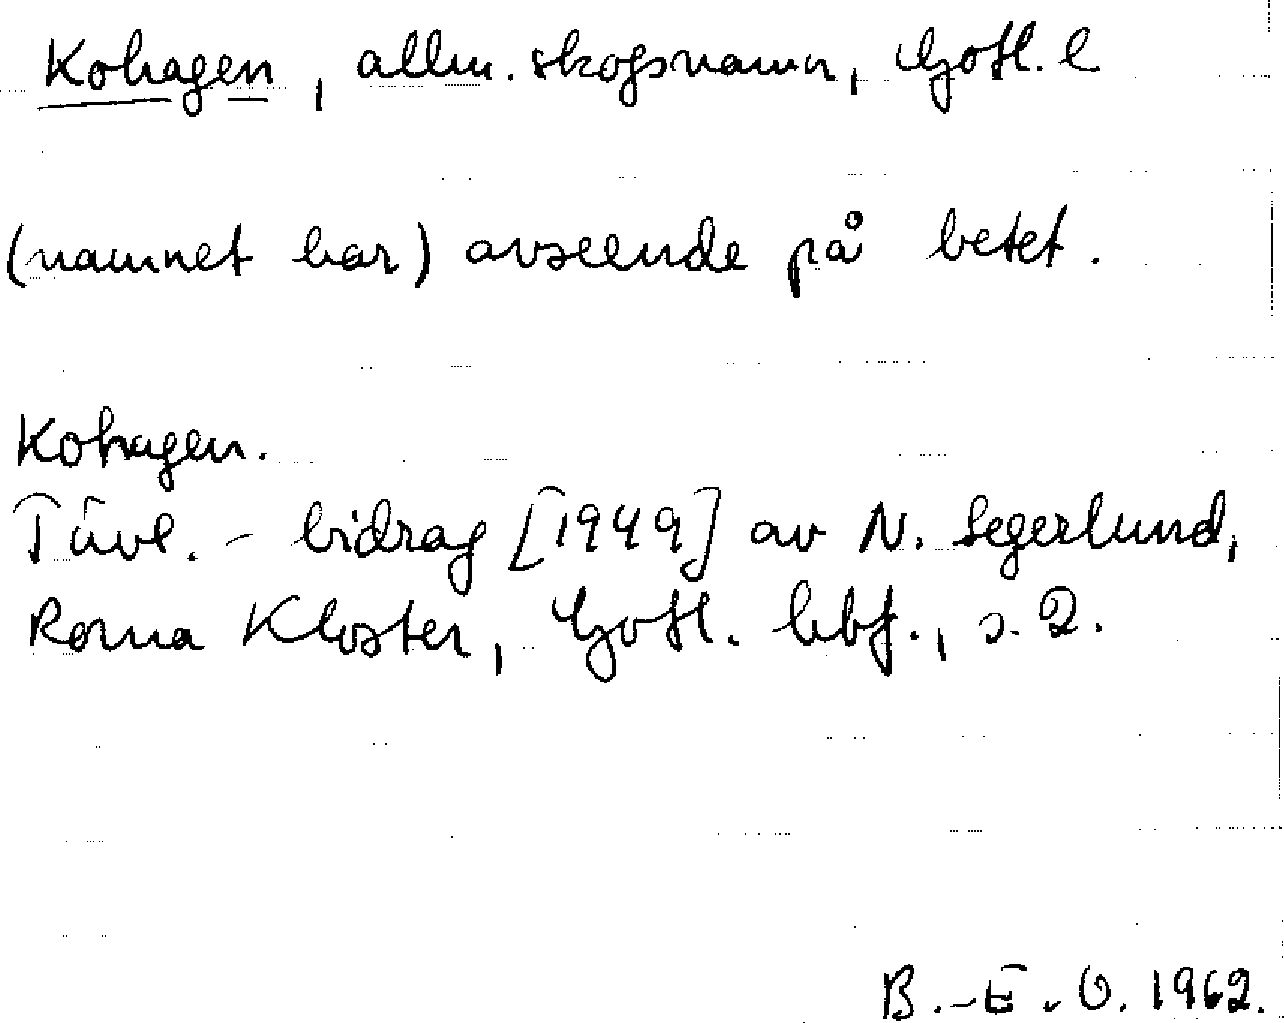 Kohagen, allm. skogsnamn, Gotl. l
(namnet har) avseende på betet.
Kohagen.
Tävl.-bidrag [1949] av N. Segerlund,
Roma Kloster, Gotl. hbf., s. 2.
B.-E. O. 1962.